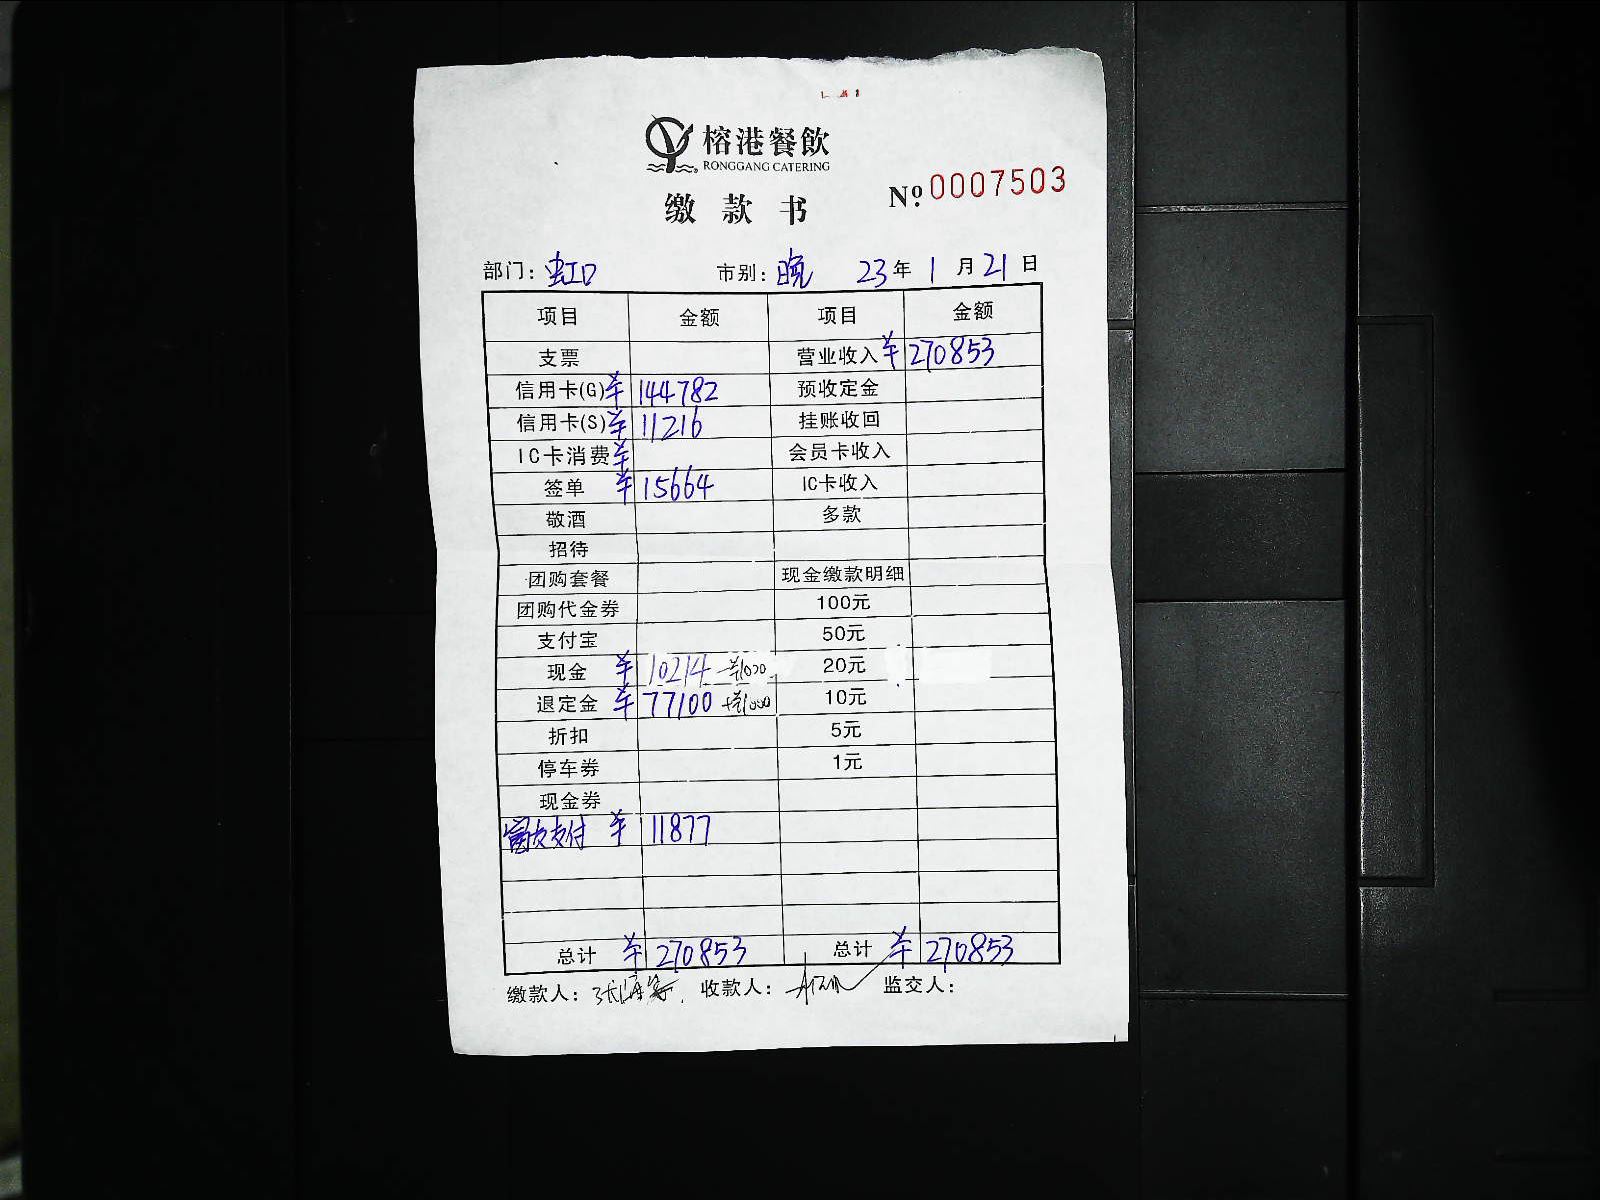 榕港餐飲
RONGGANG CATERING
缴款书
№ 0007503
部门：虹口 市别：晚 23年1月21日
项目 金额 项目 金额
支票 营业收入 ¥ 270853
信用卡(G) ¥ 144782 预收定金
信用卡(S) ¥ 11216 挂账收回
IC卡消费 ¥ 会员卡收入
签单 ¥ 15664 IC卡收入
敬酒 多款
招待
团购套餐 现金缴款明细
团购代金券 100元
支付宝 50元
现金 ¥ 10214 -¥1000 20元
退定金 ¥ 77100 +¥1000 10元
折扣 5元
停车券 1元
现金券
支付 ¥ 11877
总计 ¥ 270853 总计 ¥ 270853
缴款人： 收款人： 监交人：